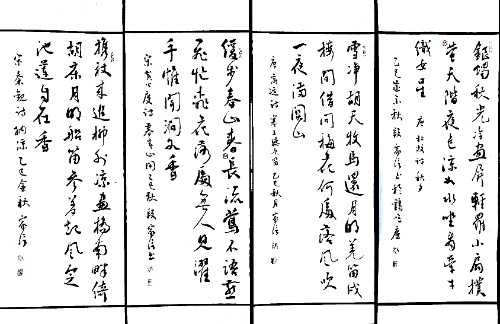 銀燭秋光冷畫屏輕羅小扇撲
螢天階夜色涼如水坐看牽牛
織女星 唐杜牧詩秋夕
乙巳
雪淨胡天牧馬還月明羌笛戍
樓間借問梅花何處落風吹
一夜滿關山
唐高適詩塞上聽吹笛乙巳秋月
緩步春山春日長流鶯不語燕
飛忙桃花落處無人見濯
手惟聞澗水香
宋黃公度詩暮春山間乙巳秋
攜杖來追柳外涼畫橋南畔倚
胡床月明船笛參差起風定
池蓮自在香
宋秦觀詩納涼乙巳金秋